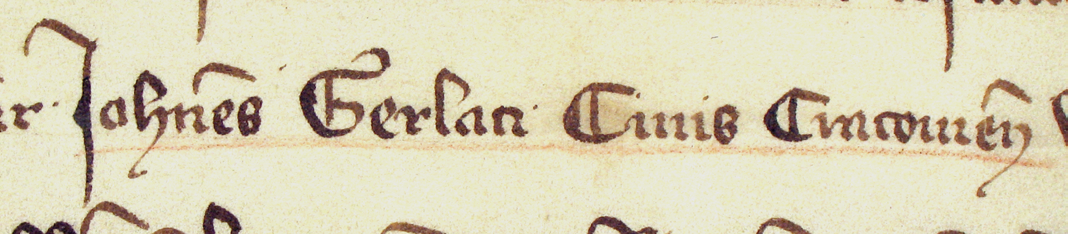 Johnes Gerlaci Ciuis Cracouien